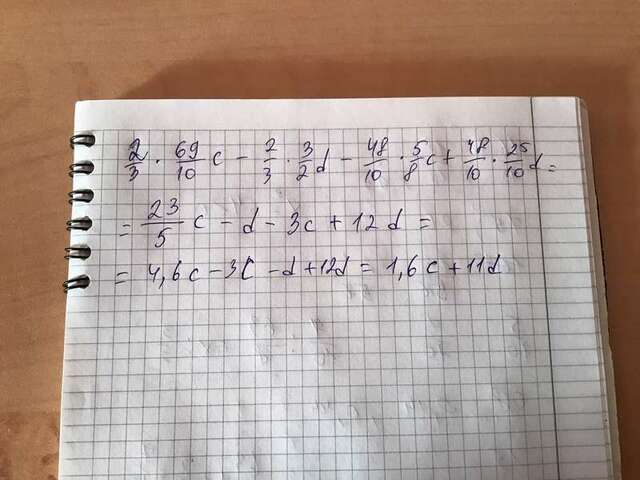 2/3 · 69/10 c - 2/3 · 3/2 d - 48/10 · 5/8 c + 48/10 · 25/10 d =
= 23/5 c - d - 3c + 12d =
= 4,6c - 3c - d + 12d = 1,6c + 11d